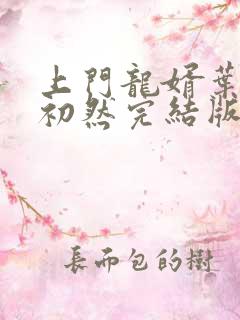 上門龍婿葉
初然完結版
長而包的樹